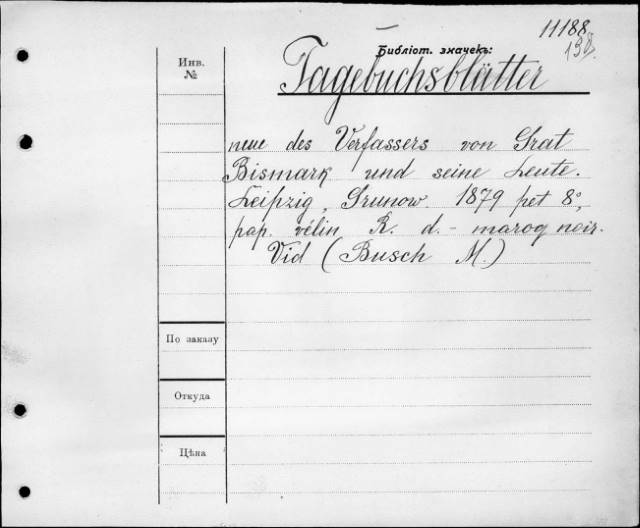 11188
Библіот. значекъ:
Tagebuchsblätter
Инв.
№
neue des Verfassers von Grat
Bismark und seine Leute.
Leipzig, Grunow. 1879 pet 8°,
pap. vélin, R. d.- maroq noir.
Vid (Busch M.)
По заказу
Откуда
Цѣна